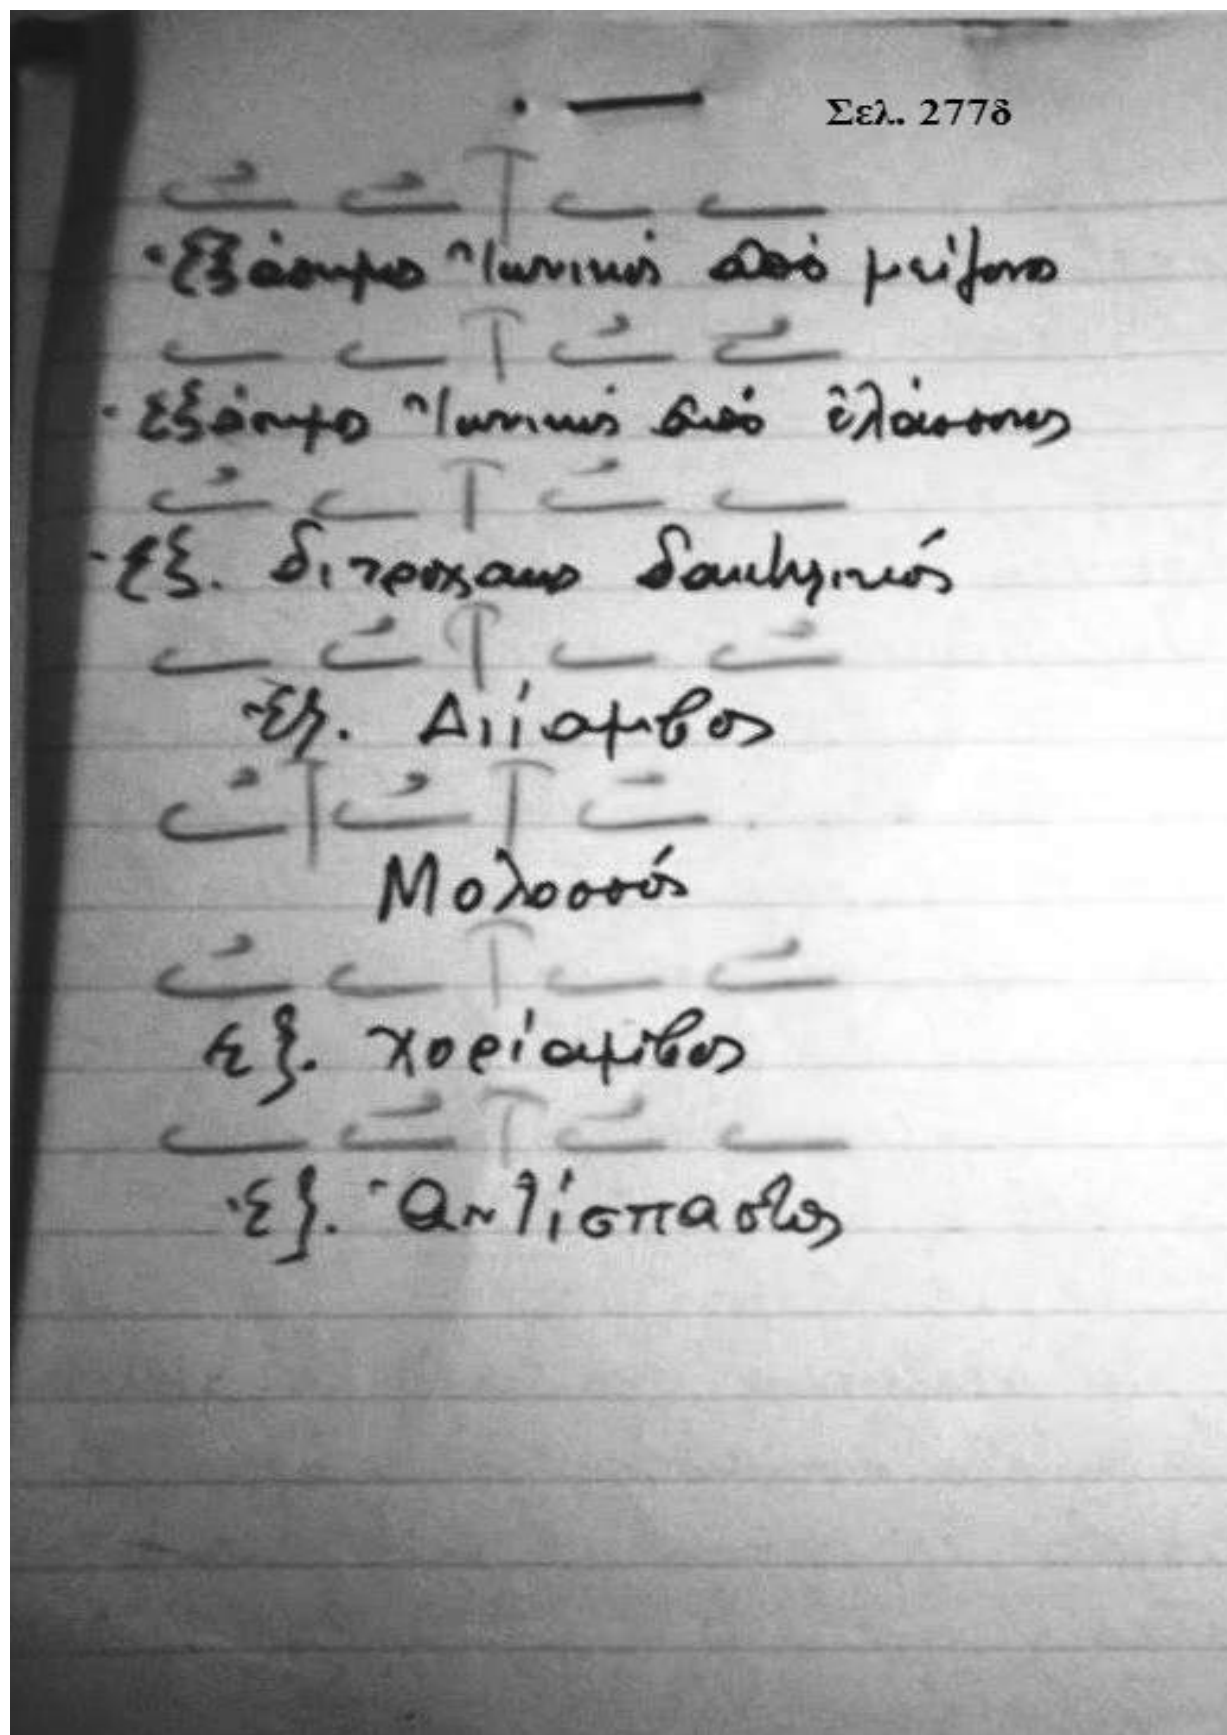 Σελ. 277δ
Ἑξάσημος Ἰωνικός ἀπό μείζονος
Ἑξάσημος Ἰωνικός ἀπό ἐλάσσονος
Ἑξ. διτρόχαιος δακτυλικός
Ἑξ. Διίαμβος
Μολοσσός
Ἑξ. χορίαμβος
Ἑξ. Ἀντίσπαστος